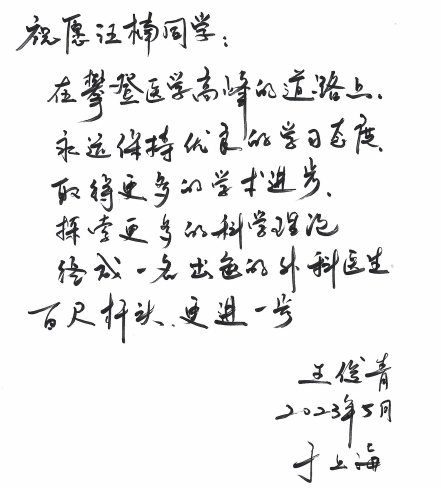 祝愿汪楠同学：
在攀登医学高峰的道路上，
永远保持优良的学习态度，
取得更多的学术进步，
探索更多的科学理论
终成一名出色的外科医生
百尺杆头，更进一步
王俊青
2023年5月
于上海